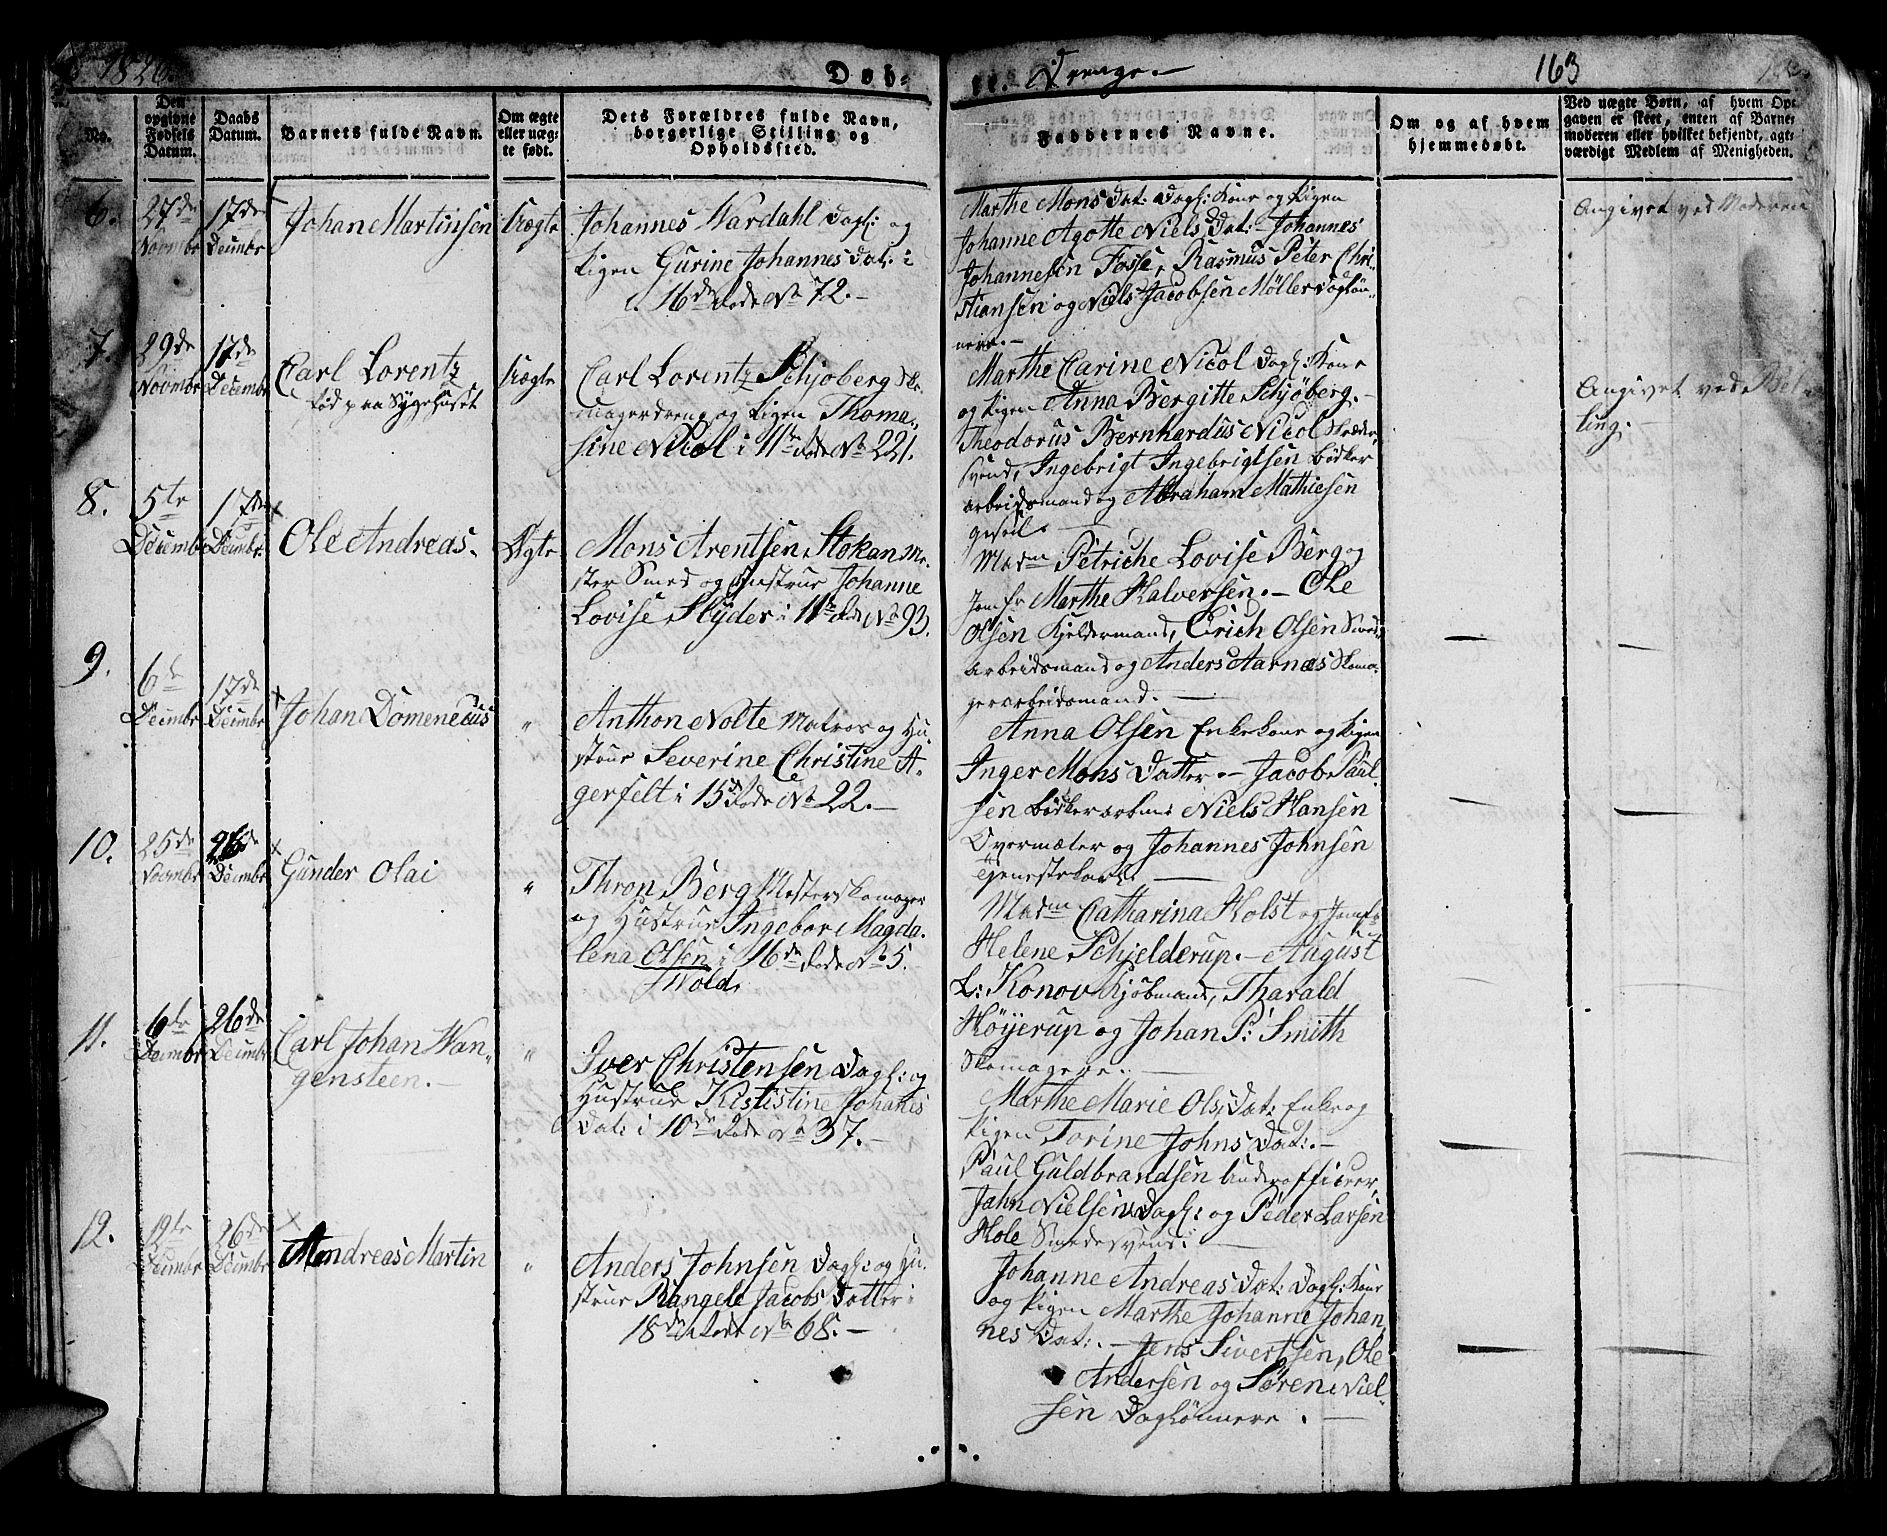 1826.
Døb-
te. Drenge.
163
No.
Den
opgivne
Fødsels
Datum.
Daabs
Datum.
Barnets fulde Navn.
Om ægte
eller uæg-
te født.
Dets Forældres fulde Navn,
borgerlige Stilling og
Opholdssted.
Faddernes Navne.
Om og af hvem
hjemmedøbt.
Ved uægte Børn, af hvem Op-
gaven er skeet, enten af Barne-
moderen eller hvilket bekjendt, agt-
værdigt Medlem af Menigheden.
6.
27de
Novmbr
17de
Decmbr
Johan Martinsen
Uægte
Johannes Wardahl Dagl: og
Pigen Gurine Johannes Dat: i
16de Rode No 72.-
Marthe Mons Dat: Dagl: Kone og Pigen
Johanne Agotte Niels Dat:- Johannes
Johannesen Fosse, Rasmus Peter Chri-
stiansen og Niels Jacobsen Møller Dagløn-
nere.-
Angivet ved Moderen
7.
29de
Novmbr
17de
Decembr
Carl Lorentz
født paa Sygehuset
Uægte
Carl Lorentz Schjoberg Sko-
magerdreng og Pigen Thoma-
sine Nicol i 11te Rode No 221.
Marthe Carine Nicol Dagl: Kone
og Pigen Anna Bergitte Schjøberg.-
Theodorus Bernhardus Nicol Skræder-
svend, Ingebrigt Ingebrigtsen Bødker
arbeidsmand og Abraham Mathiesen
Gesell.
Angivet ved
8.
5te
Decembr
17de
Decmbr.
Ole Andreas.
Ægte
Mons Arentsen Stokan Me-
ster Smed og Hustrue Johanne
Lovise Slyder i 11te Rode No 93.
Madm Petriche Lovise Berg og
Jomfr Marthe Halversen.- Ole
Olsen Kjeldermand, Erich Olsen Smed-
arbeidsmand og Anders Aarnæs Skoma-
gerarbeidsmand.
9.
6te
Decmbr
17de
Decmbr
Johan Domenecus
"
Anthon Nolte Matros og Hu-
strue Severine Christine A-
gerfelt i 15de Rode No 22.-
Anna Olsen Enkekone og Pigen
Inger Mons Datter.- Jacob Paul-
sen Bødkerarbm: Niels Hansen
Overmæler og Johannes Johnsen
Tjenestekarl.
10.
25de
Novmbr
26de
Decmbr
Gunder Olai
"
Thron Berg Mesterskomager
og Hustrue Ingebor Magda-
lena Olsen i 16de Rode No 5.
Wold.
Madm Catharina Holst og Jomfr
Helene Schjelderup.- August
L: Konov Kjøbmand, Tharald
Høyerup og Johan P: Smith
Skomagere.
11.
6te
Decmbr
26de
Decmbr
Carl Johan Wan-
gensteen.-
"
Iver Christensen Dagl: og
Hustrue Kististine Johanes
Dat: i 10de Rode No 37.-
Marthe Marie Ols Dat: Enke og
Pigen Torine Johns Dat:.-
Paul Guldbrandsen Underofficeer,
Jahn Nielsen Dagl: og Peder Larsen
Hole Smedesvend.
12.
12te
Decmbr
26de
Decmbr
Andreas Martin
"
Anders Johnsen Dagl: og Hu-
strue Rangele Jacobs Datter i
18de Rode No 68.-
Johanne Andreas Dat: Dagl: Kone
og Pigen Marthe Johanne Johan-
nes Dat:.- Jens Sivertsen, Ole
Andersen og Søren Niel-
sen Daglønnere.